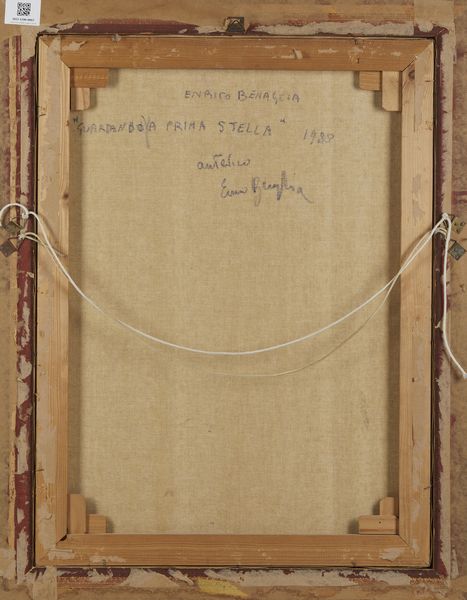 ENRICO BENAGLIA
"GUARDANDO LA PRIMA STELLA" 1988
autentico
Enrico Benaglia